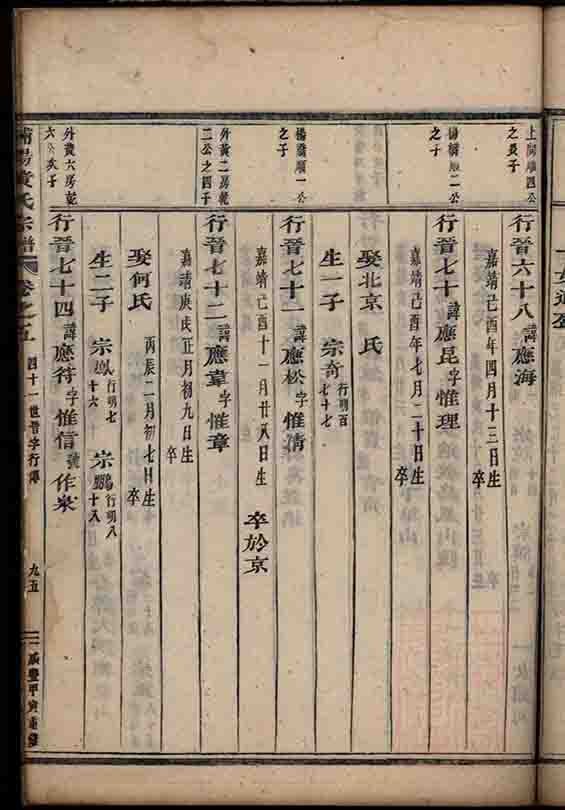 上陶順四公
之長子
行晉六十八諱應海
嘉靖己酉年四月十三日生 卒
楊橋順二公
之子
行晉七十諱應昆字惟理
嘉靖己酉年七月二十日生 卒
娶北京 氏
生一子 宗奇行明百七十七
楊橋順一公
之子
行晉七十一諱應松字惟清
嘉靖己酉十一月廿八日生 卒於京
外黃二房乾
二公之四子
行晉七十二諱應韋字惟章
嘉靖庚戌正月初九日生 卒
娶何氏 丙辰二月初七日生 卒
生二子 宗鳳行明七十六 宗鵬行明八十八
外黃六房乾
六公次子
行晉七十四諱應符字惟信號作泉
浦陽黃氏宗譜 卷之五 四十一世晉字行傳 九五 咸豐甲寅重修